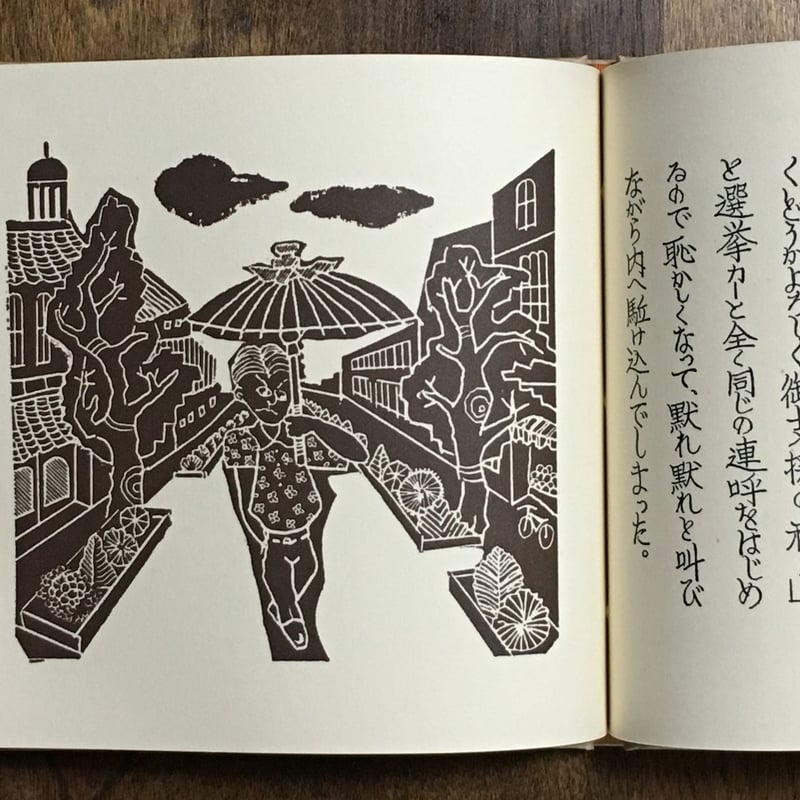 くどうかよろしく御支援の
と選挙カーと全く同じの連呼をはじめ
るので恥かしくなって、黙れ黙れと叫び
ながら内へ駈け込んでしまった。